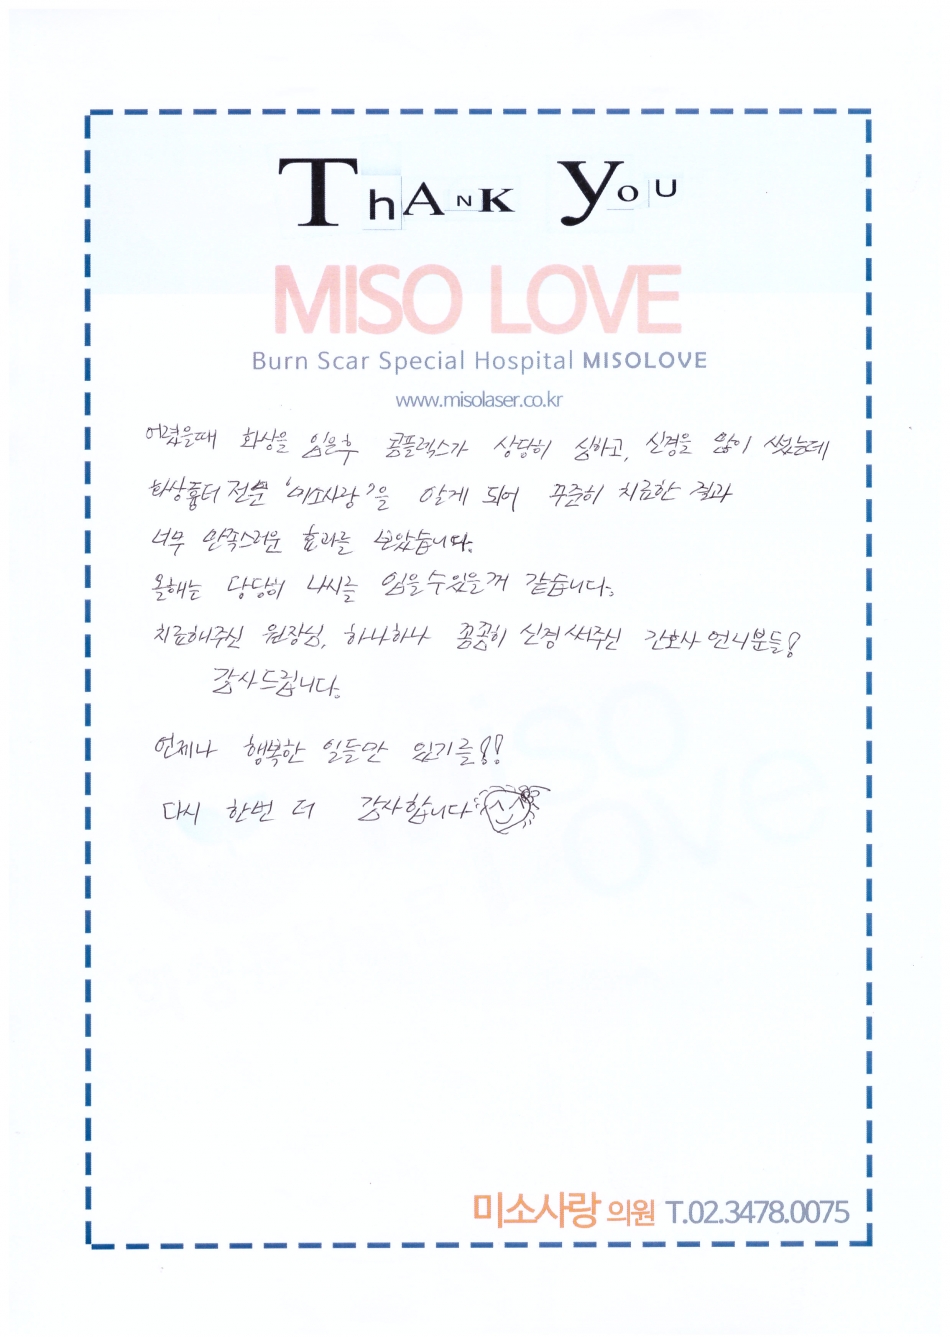 ThANK YOU
MISO LOVE
Burn Scar Special Hospital MISOLOVE
www.misolaser.co.kr
어렸을때 화상을 입은후 콤플렉스가 상당히 심하고, 신경을 많이 썼는데
화상흉터 전문 '미소사랑'을 알게 되어 꾸준히 치료한 결과
너무 만족스러운 효과를 보았습니다.
올해는 당당히 나시를 입을수있을꺼 같습니다.
치료해주신 원장님, 하나하나 꼼꼼히 신경써주신 간호사 언니분들!
감사드립니다.
언제나 행복한 일들만 있기를!!
다시 한번 더 감사합니다
miso
love
미소사랑 의원 T.02.3478.0075